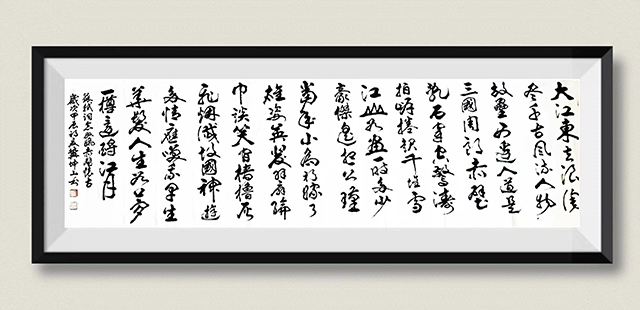 大江東去浪淘
盡千古風流人物
故壘西邊人道是
三國周郎赤壁
亂石穿空驚濤
拍岸捲起千堆雪
江山如畫一時多少
豪傑遙想公瑾
當年小喬初嫁了
雄姿英發羽扇綸
巾談笑間檣櫓灰
飛煙滅故國神遊
多情應笑我早生
華髮人生如夢
一樽還酹江月
蘇軾詞念奴嬌赤壁懷古
歲次甲辰